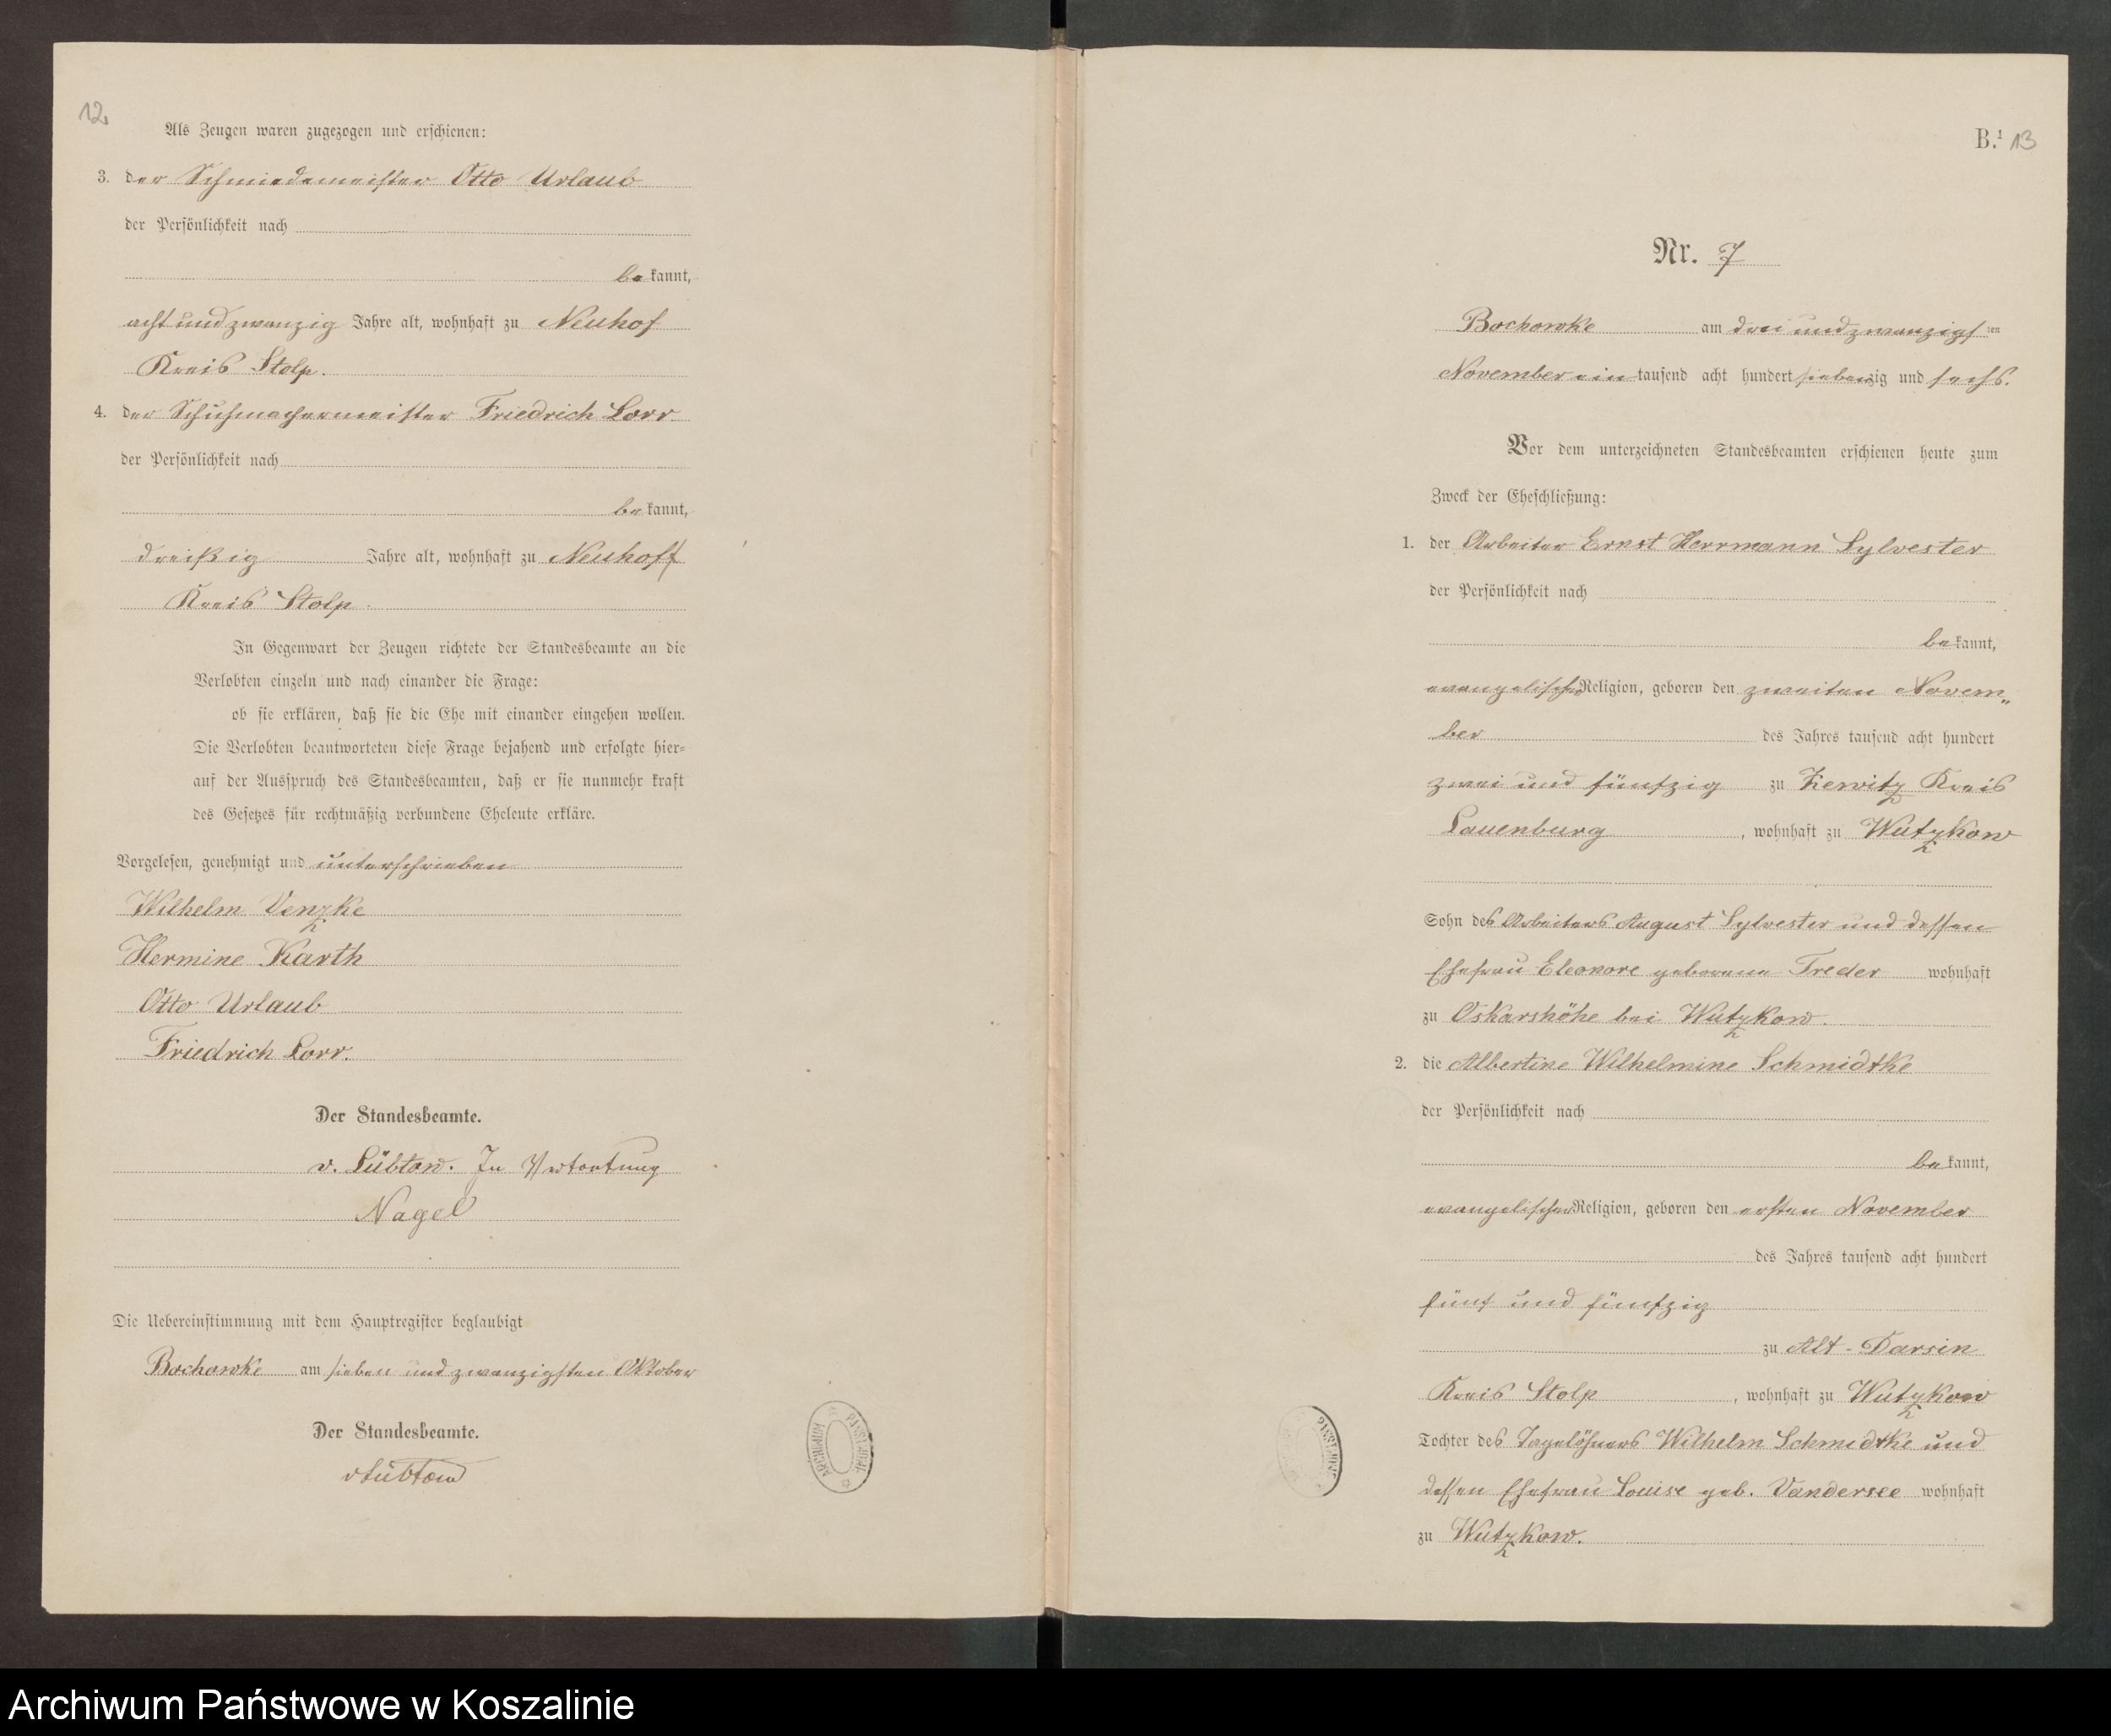 12.
Als Zeugen waren zugezogen und erschienen:
3. der Schmiedemeister Otto Urlaub
der Persönlichkeit nach
be kannt,
acht und zwanzig Jahre alt, wohnhaft zu Neuhof
Kreis Stolp.
4. der Schuhmachermeister Friedrich Lorr
der Persönlichkeit nach
be kannt,
dreißig Jahre alt, wohnhaft zu Neuhoff
Kreis Stolp.
In Gegenwart der Zeugen richtete der Standesbeamte an die
Verlobten einzeln und nach einander die Frage:
ob sie erklären, daß sie die Ehe mit einander eingehen wollen.
Die Verlobten beantworteten diese Frage bejahend und erfolgte hier=
auf der Ausspruch des Standesbeamten, daß er sie nunmehr kraft
des Gesetzes für rechtmäßig verbundene Eheleute erkläre.
Vorgelesen, genehmigt und unterschrieben
Wilhelm Venzke
Hermine Karth
Otto Urlaub
Friedrich Lorr.
Der Standesbeamte.
v. Lübtow. In Vertretung
Nagel
Die Uebereinstimmung mit dem Hauptregister beglaubigt
Bochowke am sieben und zwanzigsten Oktober
Der Standesbeamte.
vLübtow
ARCHIWUM PAŃSTWOWE
B.1 13
Nr. 7
Bochowke am drei und zwanzigsten
November ein tausend acht hundert siebenzig und sechs.
Vor dem unterzeichneten Standesbeamten erschienen heute zum
Zweck der Eheschließung:
1. der Arbeiter Ernst Herrmann Sylvester
der Persönlichkeit nach
be kannt,
evangelischer Religion, geboren den zweiten Novem„
ber des Jahres tausend acht hundert
zwei und fünfzig zu Zewitz Kreis
Lauenburg, wohnhaft zu Wutzkow
Sohn des Arbeiters August Sylvester und dessen
Ehefrau Eleonore geborene Treder wohnhaft
zu Oskarshöhe bei Wutzkow.
2. die Albertine Wilhelmine Schmidtke
der Persönlichkeit nach
be kannt,
evangelischer Religion, geboren den ersten November
des Jahres tausend acht hundert
fünf und fünfzig
zu Alt-Darsin
Kreis Stolp, wohnhaft zu Wutzkow
Tochter des Tagelöhners Wilhelm Schmidtke und
dessen Ehefrau Louise geb. Vandersee wohnhaft
zu Wutzkow.
Archiwum Państwowe w Koszalinie